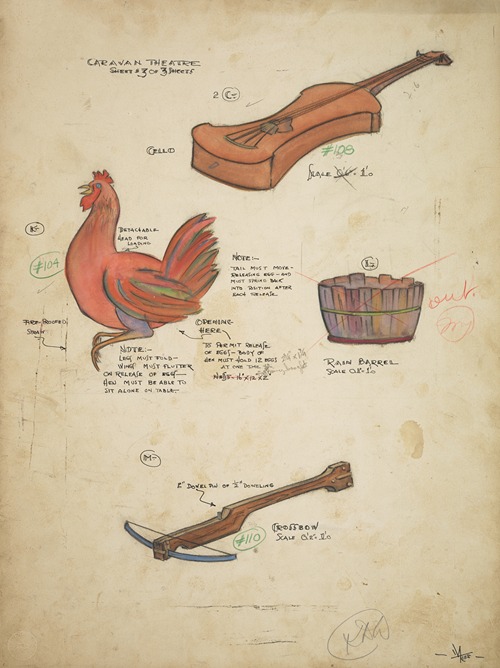 CARAVAN THEATRE
SHEET #3 OF 3 SHEETS
2 C-
CELLO
#108
SCALE 1'0
K-
#104
DETACHABLE
HEAD FOR
LOADING
NOTE:-
TAIL MUST MOVE-
RELEASING EGG-AND
MUST SPRING BACK
INTO POSITION AFTER
EACH RELEASE.
L-
out.
RAIN BARREL
SCALE 0'2"-1'0
OPENING
HERE-
TO PERMIT RELEASE
OF EGGS-BODY OF
HEN MUST HOLD 12 EGGS
AT ONE TIME
NOTE:-
LEG MUST FOLD-
WING MUST FLUTTER
ON RELEASE OF EGG-
HEN MUST BE ABLE TO
SIT ALONE ON TABLE-
M-
2" DOWEL PIN OF ½" DOWELING
#110
CROSSBOW
SCALE 0'2"-1'0